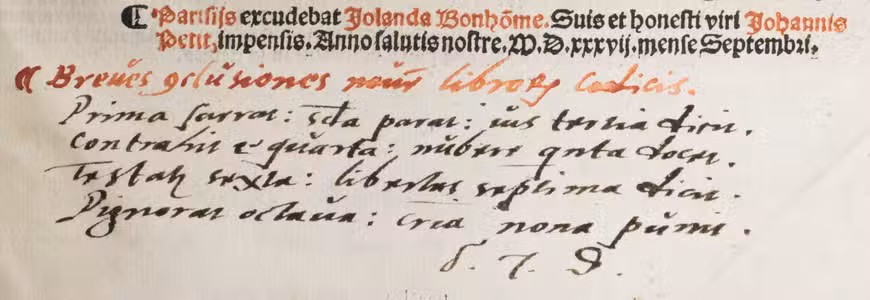 ¶ Parisijs excudebat Jolanda Bonhōme. Suis et honesti viri Johannis
Petit, impensis. Anno salutis nostre. M.D.xxxvij. mense Septembri.
¶ Breues ꝯclusiones nouē libroꝝ codicis.
Prima sacrat: scd̄a parat: ius tertia dicit.
Contrahit quarta: nubere qnta docet.
Testatꝝ sexta: libertas septima dicit.
Pignorat octaua: cr̄ia nona punit.